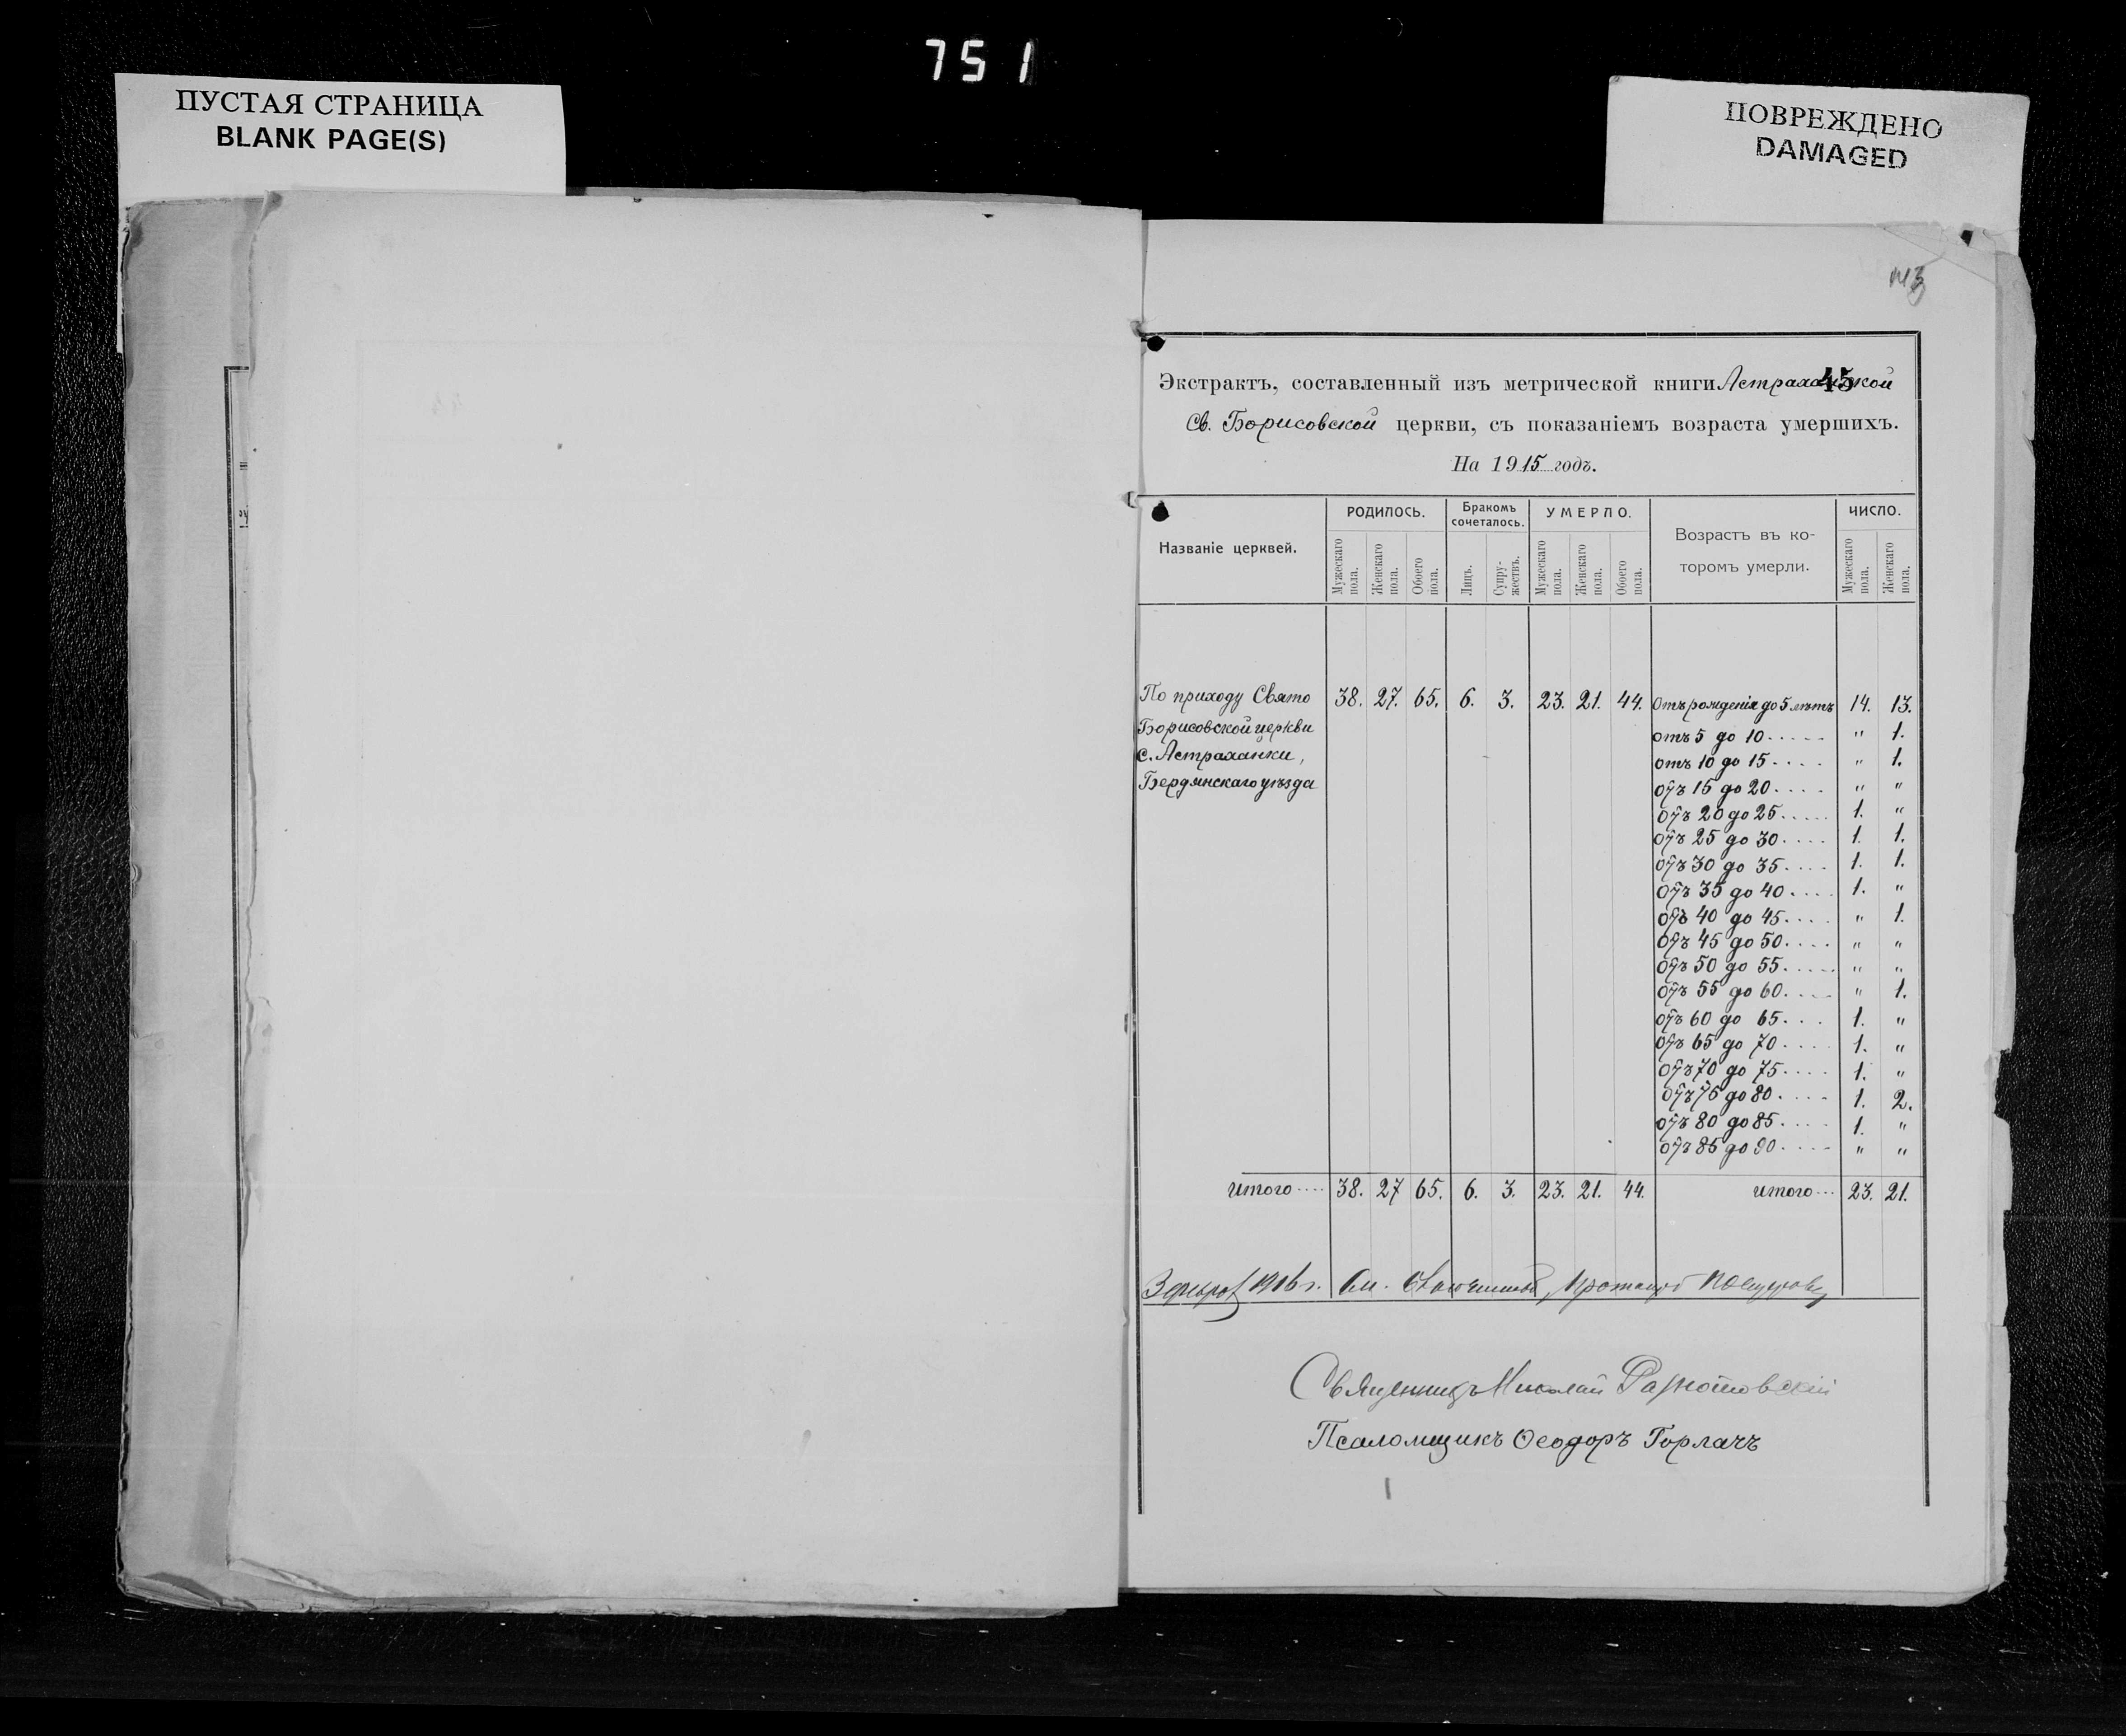 751
ПУСТАЯ СТРАНИЦА
BLANK PAGE(S)
ПОВРЕЖДЕНО
DAMAGED
45
Экстрактъ, составленный изъ метрической книги Астраханской
Св. Борисовской церкви, съ показаніемъ возраста умершихъ.
На 1915 годъ.
Названіе церквей. РОДИЛОСЬ. Бракомъ сочеталось. УМЕРЛО. Возрастъ въ ко-торомъ умерли. ЧИСЛО.
Мужескаго пола. Женскаго пола. Обоего пола. Лицъ. Супру-жествъ. Мужескаго пола. Женскаго пола. Обоего пола. Мужескаго пола. Женскаго пола.
По приходу Свято 38. 27. 65. 6. 3. 23. 21. 44. Отъ рожденія до 5 лѣтъ 14. 13.
Борисовской церкви отъ 5 до 10 ..... " 1.
с. Астраханки, отъ 10 до 15 .... " 1.
Бердянскаго уѣзда отъ 15 до 20 .... " "
отъ 20 до 25 ..... 1. "
отъ 25 до 30 .... 1. 1.
отъ 30 до 35 .... 1. 1.
отъ 35 до 40 .... 1. "
отъ 40 до 45 .... " 1.
отъ 45 до 50 .... " "
отъ 50 до 55 ..... " "
отъ 55 до 60 .... " 1.
отъ 60 до 65 ... 1. "
отъ 65 до 70 .... 1. "
отъ 70 до 75 .... 1. "
отъ 75 до 80 .... 1. 2.
отъ 80 до 85 .... 1. "
отъ 85 до 90 .... " "
итого .... 38. 27 65. 6. 3. 23. 21. 44. итого ... 23. 21.
1916 г.
Священникъ Николай
Псаломщикъ Ѳеодоръ Горлачъ